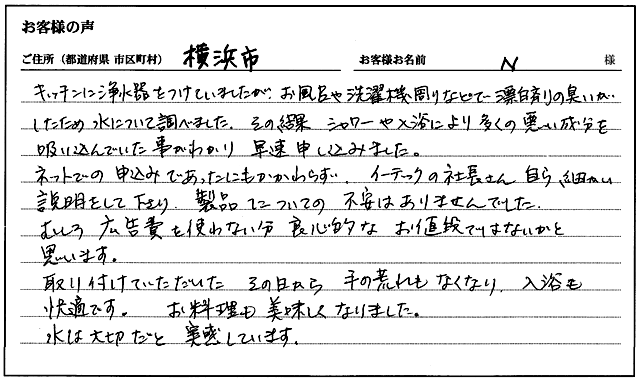 お客様の声
ご住所（都道府県 市区町村） 横浜市 お客様お名前 N 様
キッチンに浄水器をつけていましたが、お風呂や洗濯機周りなどで漂白剤の臭いが
したため水について調べました。その結果 シャワーや入浴により多くの悪い成分を
吸い込んでいた事がわかり 早速申し込みました。
ネットでの申込みであったにもかかわらず、イーテックの社長さん自ら、細かい
説明をして下さり、製品についての不安はありませんでした。
むしろ 広告費を使わない分 良心的な お値段ではないかと
思います。
取り付けていただいた その日から 手の荒れもなくなり、入浴も
快適です。 お料理も美味しくなりました。
水は大切だと 実感しています。